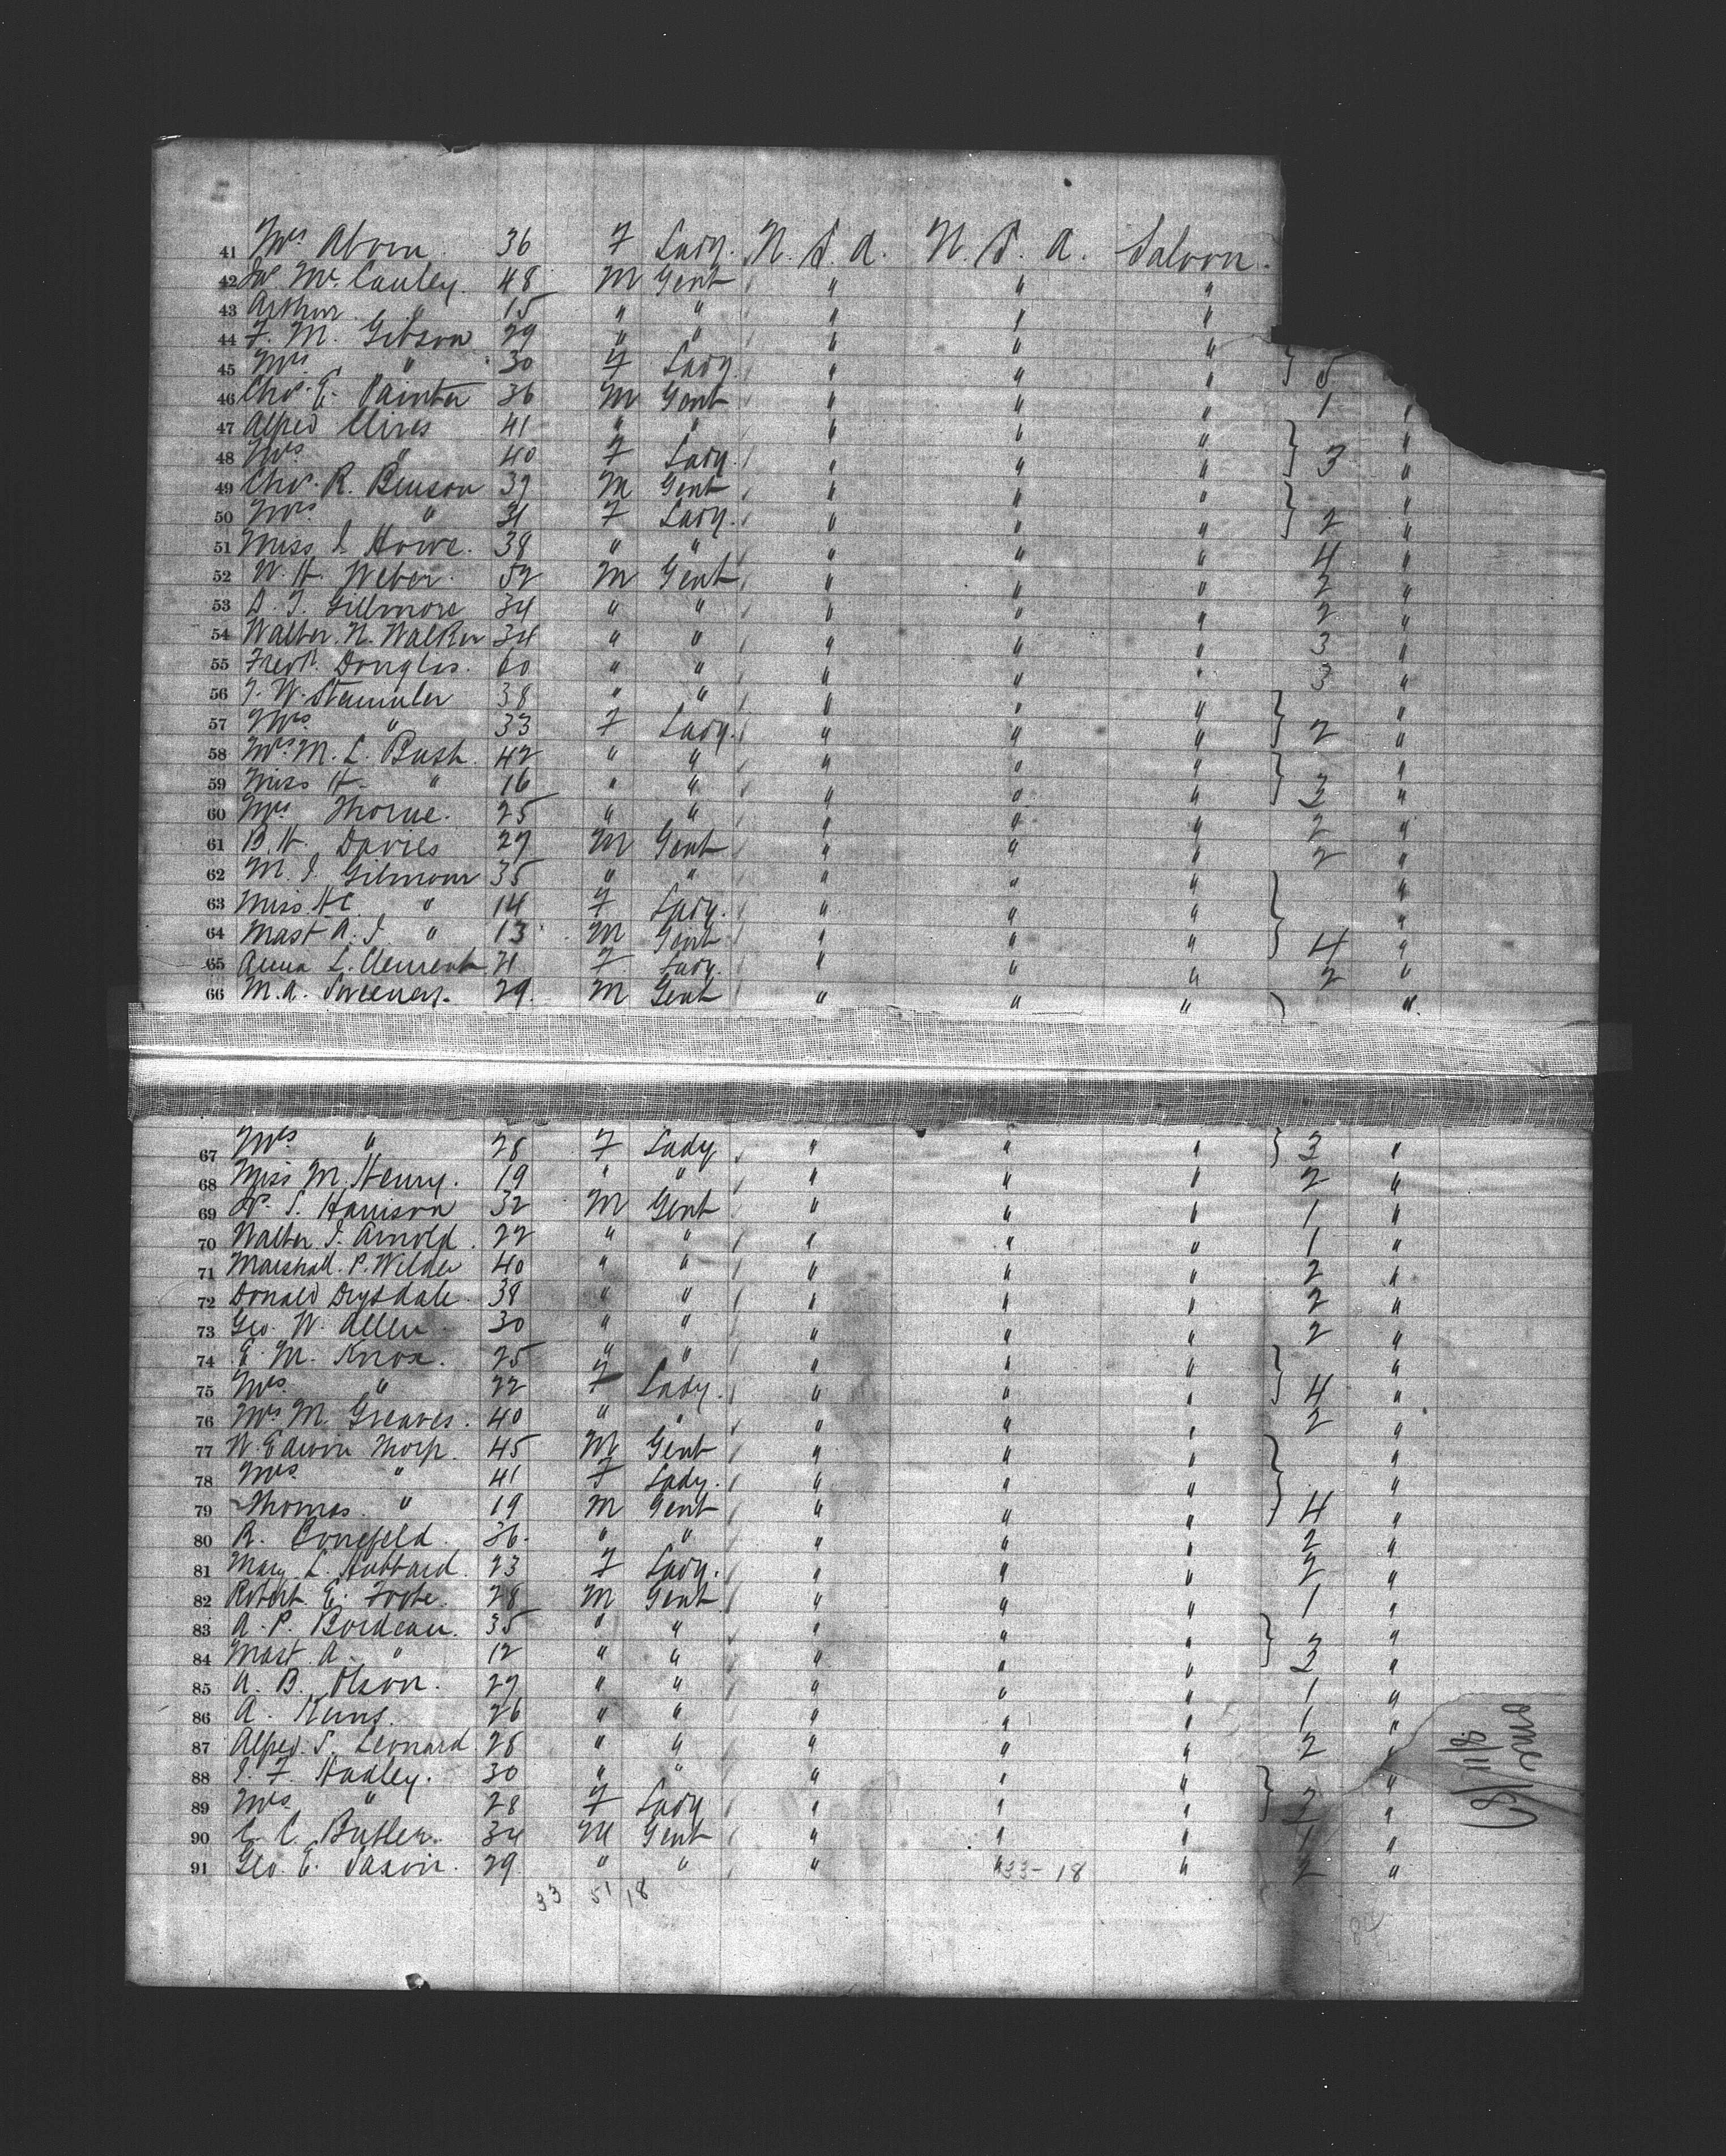 41 Mrs Aborn. 36 F Lady. U. S. A. U. S. A. Saloon.
42 Jas McCauley. 48 M Gent " " "
43 Arthur " 15 " " " " "
44 F. M. Gibson 29 " " " " "
45 Mrs " 30 F Lady. " " " } 5
46 Chas. E. Painter 36 M Gent " " " 1 "
47 Alfred Clives 41 " " " " " "
48 Mrs " 40 F Lady. " " " } 3 "
49 Chas. R. Benson 39 M Gent " " " "
50 Mrs. " 31 F Lady. " " " } 2 "
51 Miss S. Howe. 38 " " " " " 4 "
52 W. H. Weber. 52 M Gent " " " 2 "
53 D. T. Gillmore 34 " " " " " 2 "
54 Walter. N. Walker 34 " " " " " 3 "
55 Fredk. Douglis. 60 " " " " " 3 "
56 J. W. Stammler 38 " " " " " "
57 Mrs " 33 F Lady. " " " } 2 "
58 Mrs M. L. Bush. 42 " " " " " "
59 Miss H. " 16 " " " " " } 3 "
60 Mrs Thorne. 25 " " " " " 2 "
61 B. H. Davies 27 M Gent " " " 2 "
62 M. J. Gilmour 35 " " " " " "
63 Miss HC. " 14 F Lady. " " " "
64 Mast A. J. " 13 M Gent " " " } 4 "
65 Anna L. Clement 21 F. Lady. " " " 2 "
66 M. A. Sweeney. 29. M Gent " " " "
67 Mrs " 28 F Lady " " " } 3 "
68 Miss M. Henry. 19 " " " " " 2 "
69 Jos. S. Harrison 32 M Gent " " " 1 "
70 Walter J. Arnold. 22 " " " " " 1 "
71 Marshall. P. Wilder 40 " " " " " 2 "
72 Donald Drysdale. 38 " " " " " 2 "
73 Geo. W. Allen. 30 " " " " " 2 "
74 E. M. Knox. 25 " " " " " "
75 Mrs. " 22 F Lady. " " " } 4 "
76 Mrs M. Greaves. 40 " " " " " 2 "
77 W. Edwin Thorp. 45 M Gent " " " "
78 Mrs " 41 F Lady. " " " "
79 Thomas " 19 M Gent " " " } 4 "
80 R. Bonefeld. 36. " " " " " 2 "
81 Mary L. Hubbard. 23 F Lady. " " " 2 "
82 Robert E. Foote. 28 M Gent " " " 1 "
83 A. P. Bordeau. 35 " " " " " "
84 Mast. A. " 12 " " " " " } 3 "
85 A. B. Olson. 27 " " " " " 1 "
86 A. Kuns. 26 " " " " " 1 "
87 Alfred. S. Leonard 28 " " " " " 2 "
88 J. F. Hadley. 30 " " " " " "
89 Mrs. " 28 F Lady " " " } 3 "
90 C. C. Butler. 34 M Gent " " " 1 "
91 Geo. E. Saxon. 29. " " " " 33-18 " 2 "
33 51 18
84